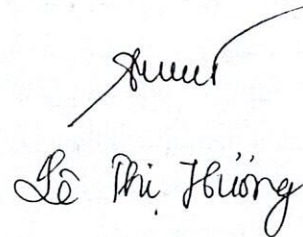 Lê Thị Hường